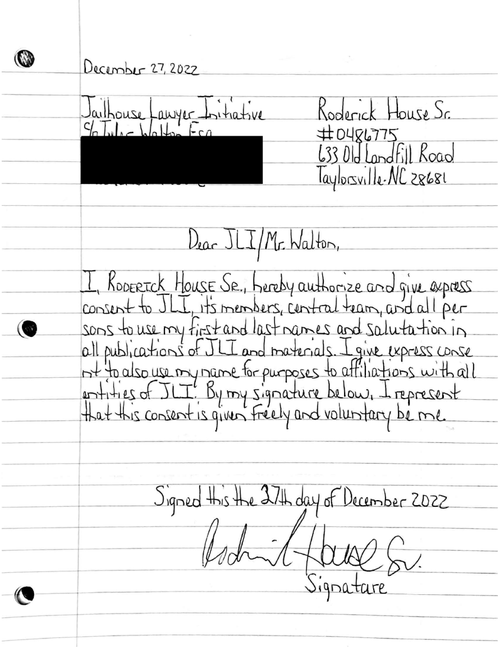 December 27, 2022
Jailhouse Lawyer Initiative
c/o Tyler Walton Esq
Roderick House Sr.
#0486775
633 Old Landfill Road
Taylorsville NC 28681
Dear JLI/Mr. Walton,
I, RODERICK HOUSE SR., hereby authorize and give express
consent to JLI, it's members, central team, and all per
sons to use my first and last names and salutation in
all publications of JLI and materials. I give express conse
nt to also use my name for purposes to affiliations with all
entities of JLI. By my signature below, I represent
that this consent is given freely and voluntary be me
Signed this the 27th day of December 2022
Roderick House Sr.
Signature